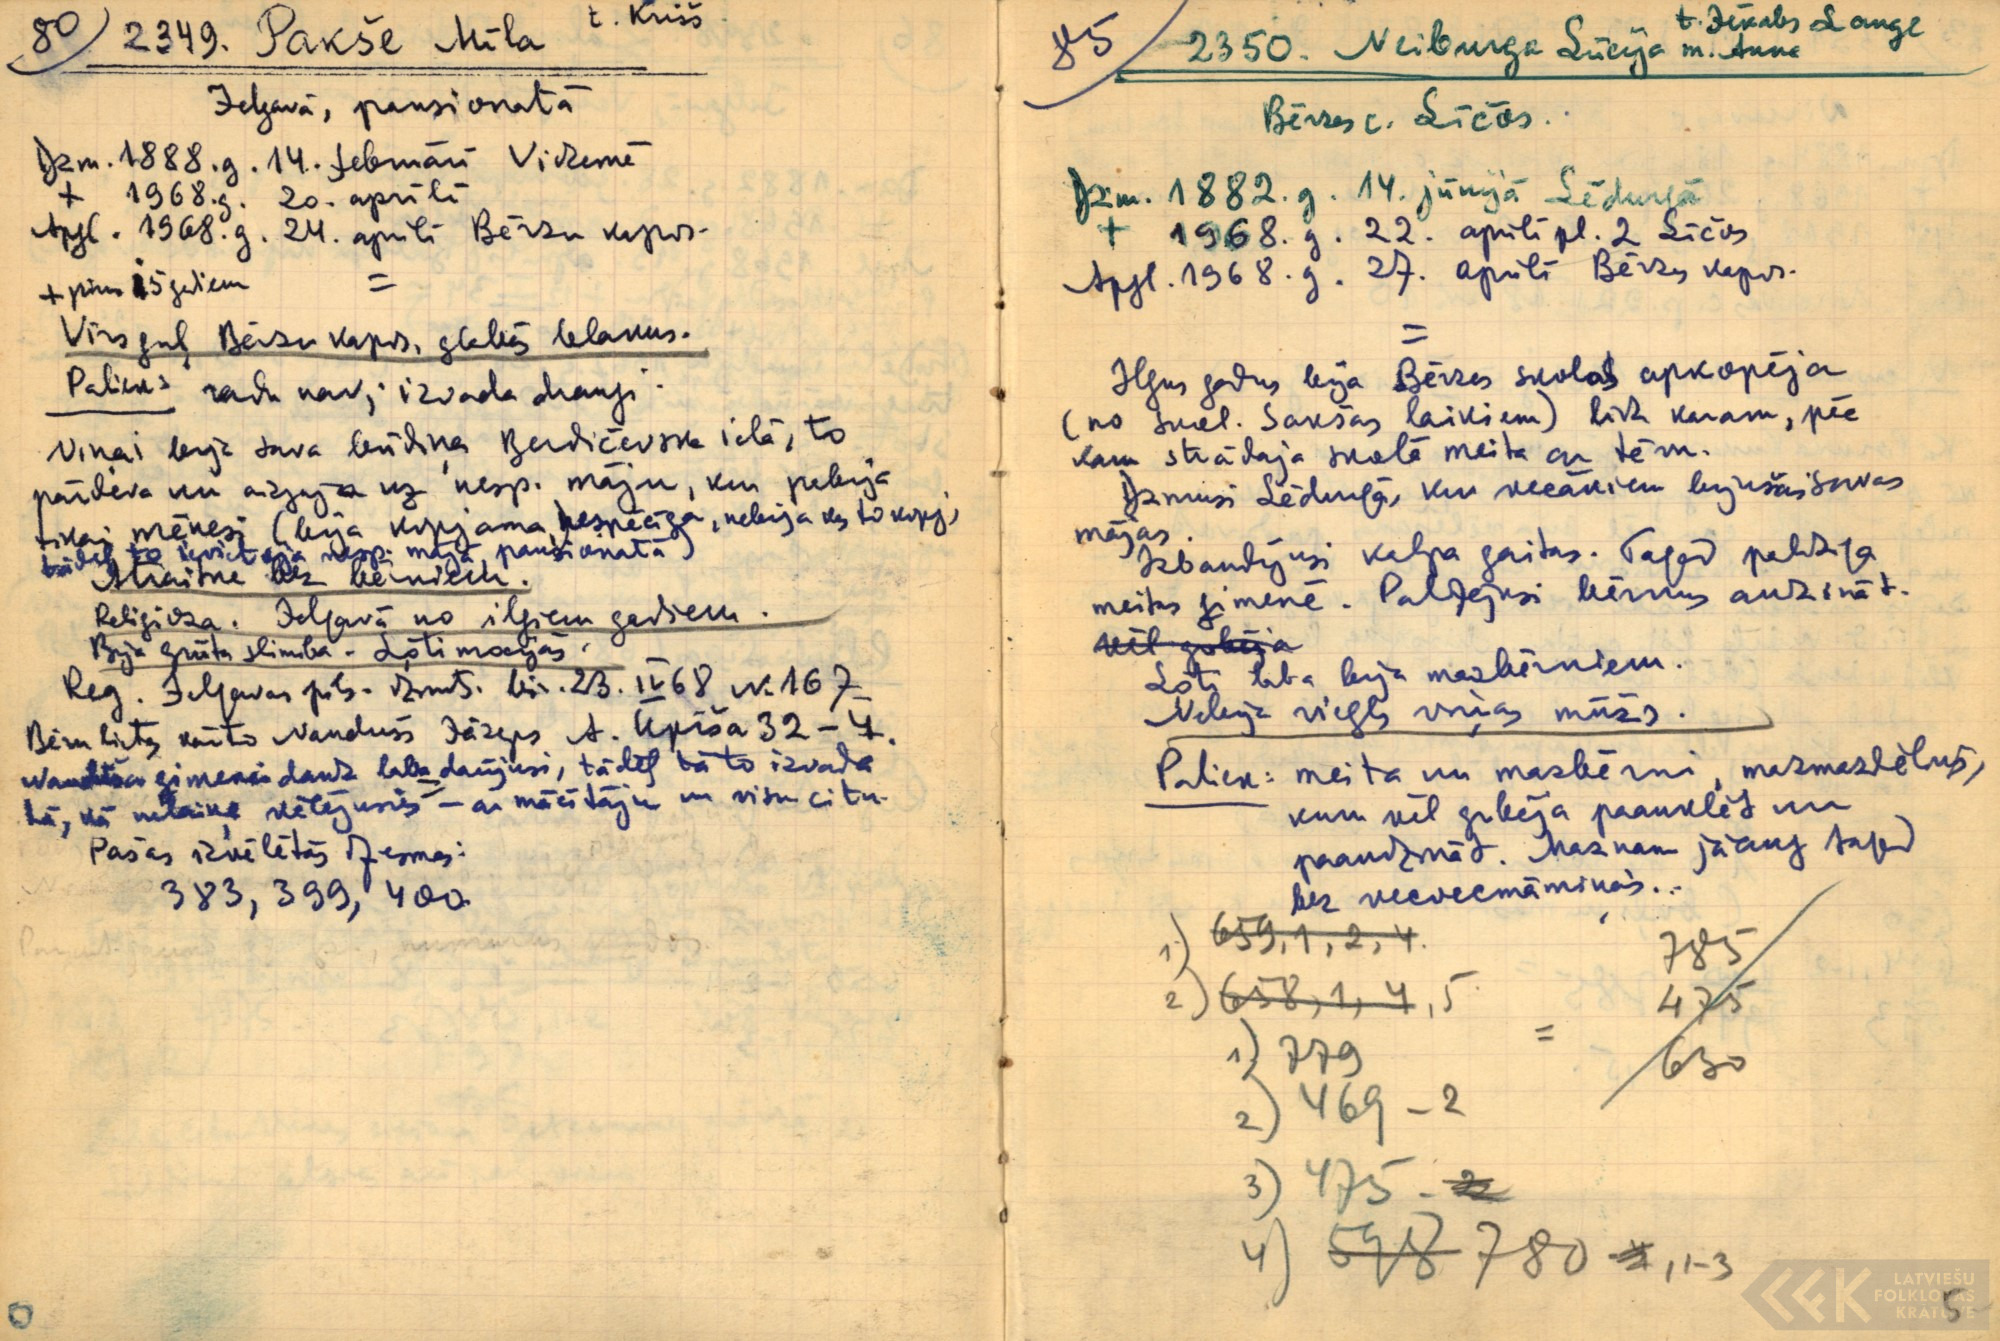 80) 2349. Pakše Mīla t. Krišs
Jelgavā, pansionatā
Dzm. 1888.g. 14. februārī Vidzemē
+ 1968.g. 20. aprīlī
Apgl. 1968.g. 24. aprīlī Bērzu kapos.
+ pirms 15 gadiem =
Vīrs guļ Bērzu kapos, glabās blakus.
Paliek: radu nav, izvada draugi.
Viņai bija sava būdiņa Berdičevska ielā, to
pārdeva un aizgāja uz nesp. māju, kur pabija
tikai mēnesi (bija kopjama, nespēcīga, nebija kas to kopj,
tādēļ to ievietoja nesp. mājā pansionatā)
Atraitne bez bērniem.
Religioza. Jelgavā no ilgiem gadiem.
Bija grūta slimība. Ļoti mocījās.
Reg. Jelgavas pils. dzmts. bir. 23. IV 68 № 167
Bēru lietas kārto Nandušs Jāzeps A. Upīša 32 - 7.
ģimenei daudz laba darījusi, tādēļ tā to izvada
tā, kā nelaiķe vēlējusies - ar mācītāju un visu citu.
Pašas izvēlētās dziesmas:
383, 399, 400.
85) 2350. Neiburga Lūcija t. Jēkabs Lange
m. Anna
Bērzes c. Līčos.
Dzm. 1882.g. 14. jūnijā Lēdurgā
+ 1968.g. 22. aprīlī pl. 2 Līčos
Apgl. 1968.g. 27. aprīlī Bērzes kapos.
=
Ilgus gadus bija Bērzes skolas apkopēja
(no skol. Sakšas laikiem) līdz karam, pēc
kam strādāja skolā meita ar tēm.
Dzimusi Lēdurgā, kur vecākiem bijušas savas
mājas.
Izbaudījusi kalpa gaitas. Tagad palīdzēja
meitas ģimenē. Palīdzējusi bērnus audzināt.
vēl gribēja
Ļoti laba bija mazbērniem.
Nebija viegls viņas mūžs.
Paliek: meita un mazbērni, mazmazdēliņš,
kuru vēl gribēja paauklēt un
paaudzināt. Maznam jāaug tagad
bez vecvecmāmiņas...
1) 659, 1, 2, 4.
785
2) 658, 1, 4, 5.
475
1) 779
=
630
2) 469 - 2
3) 475 - 2
4) 598 780 , 1-3
LATVIEŠU
FOLKLORAS
KRĀTUVE
5